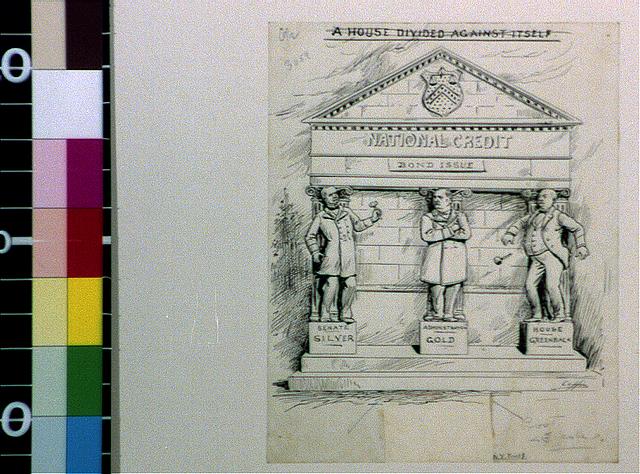 A HOUSE DIVIDED AGAINST ITSELF
NATIONAL CREDIT
BOND ISSUE
SENATE
SILVER
ADMINISTRATION
GOLD
HOUSE
GREENBACK